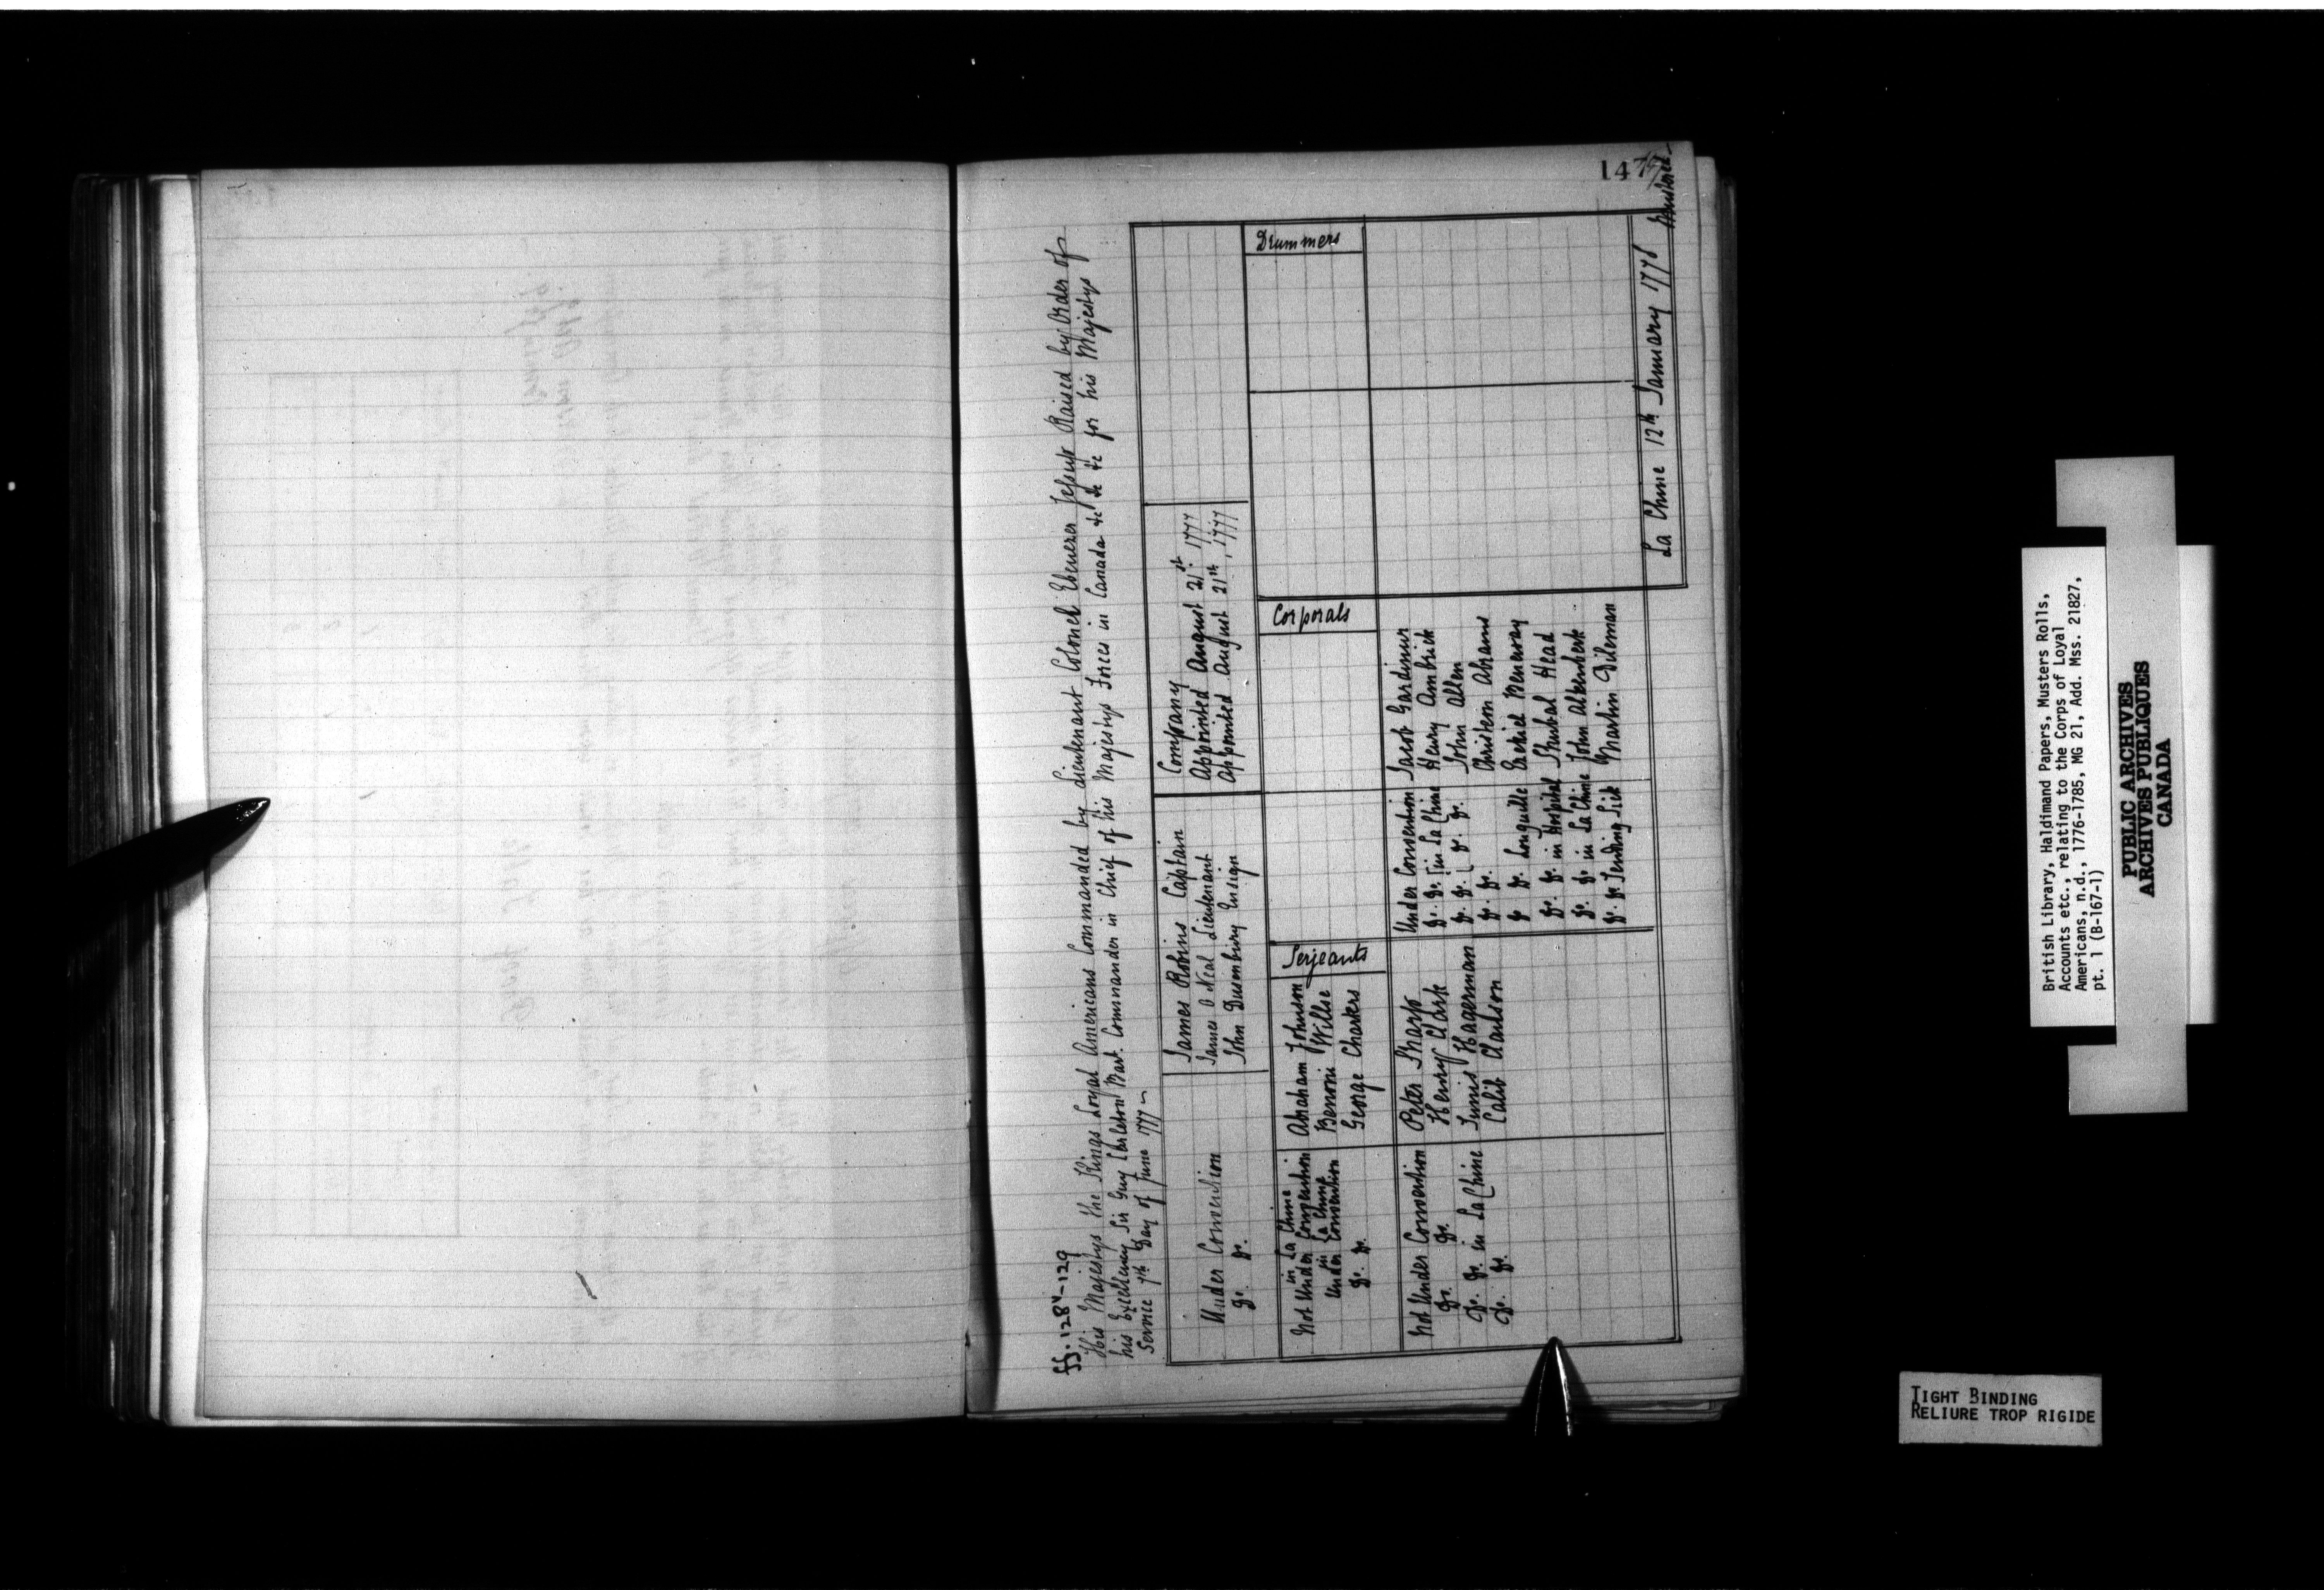 147
ff. 128v-129
His Majestys the Kings Loyal Americans Commanded by Lieutenant Colonel Ebenezer Jessup Raised by Order of
his Excellency Sir Guy Carleton Bart. Commander in Chief of his Majestys Forces in Canada &c &c &c for his Majestys
Service 7th Day of June 1777
James Robins Captain Company
Under Convention James O Neal Lieutenant Appointed August 21st 1777
Do. Do. John Dusenbury Ensign Appointed August 21th, 1777
Serjeants Corporals Drummers
in La Chine
Not Under Convention Abraham Johnson
in La Chine
Under Convention Benoni Willse
Do. Do. George Charters
Not Under Convention Peter Sharp Under Convention Jacob Gardinier
Do. Do. Henry Clark Do. Do. in La Chine Henry Ambrick
Do. Do. in La Chine Tunis Hagerman Do. Do. Do. Do. John Allen
Do. Do. Calib Clauson Do. Do. Christern Abrams
Do Do. Longuille Ezekiel Beneway
Do. Do. in Hospital Shubal Head
Do. Do in La Chine John Alkenberk
Do. Do. Tending Sick Martin Dileman
La Chine 12th January 1778 Mustered
British Library, Haldimand Papers, Musters Rolls,
Accounts etc., relating to the Corps of Loyal
Americans, n.d., 1776-1785, MG 21, Add. Mss. 21827,
pt. 1 (B-167-1)
PUBLIC ARCHIVES
ARCHIVES PUBLIQUES
CANADA
TIGHT BINDING
RELIURE TROP RIGIDE